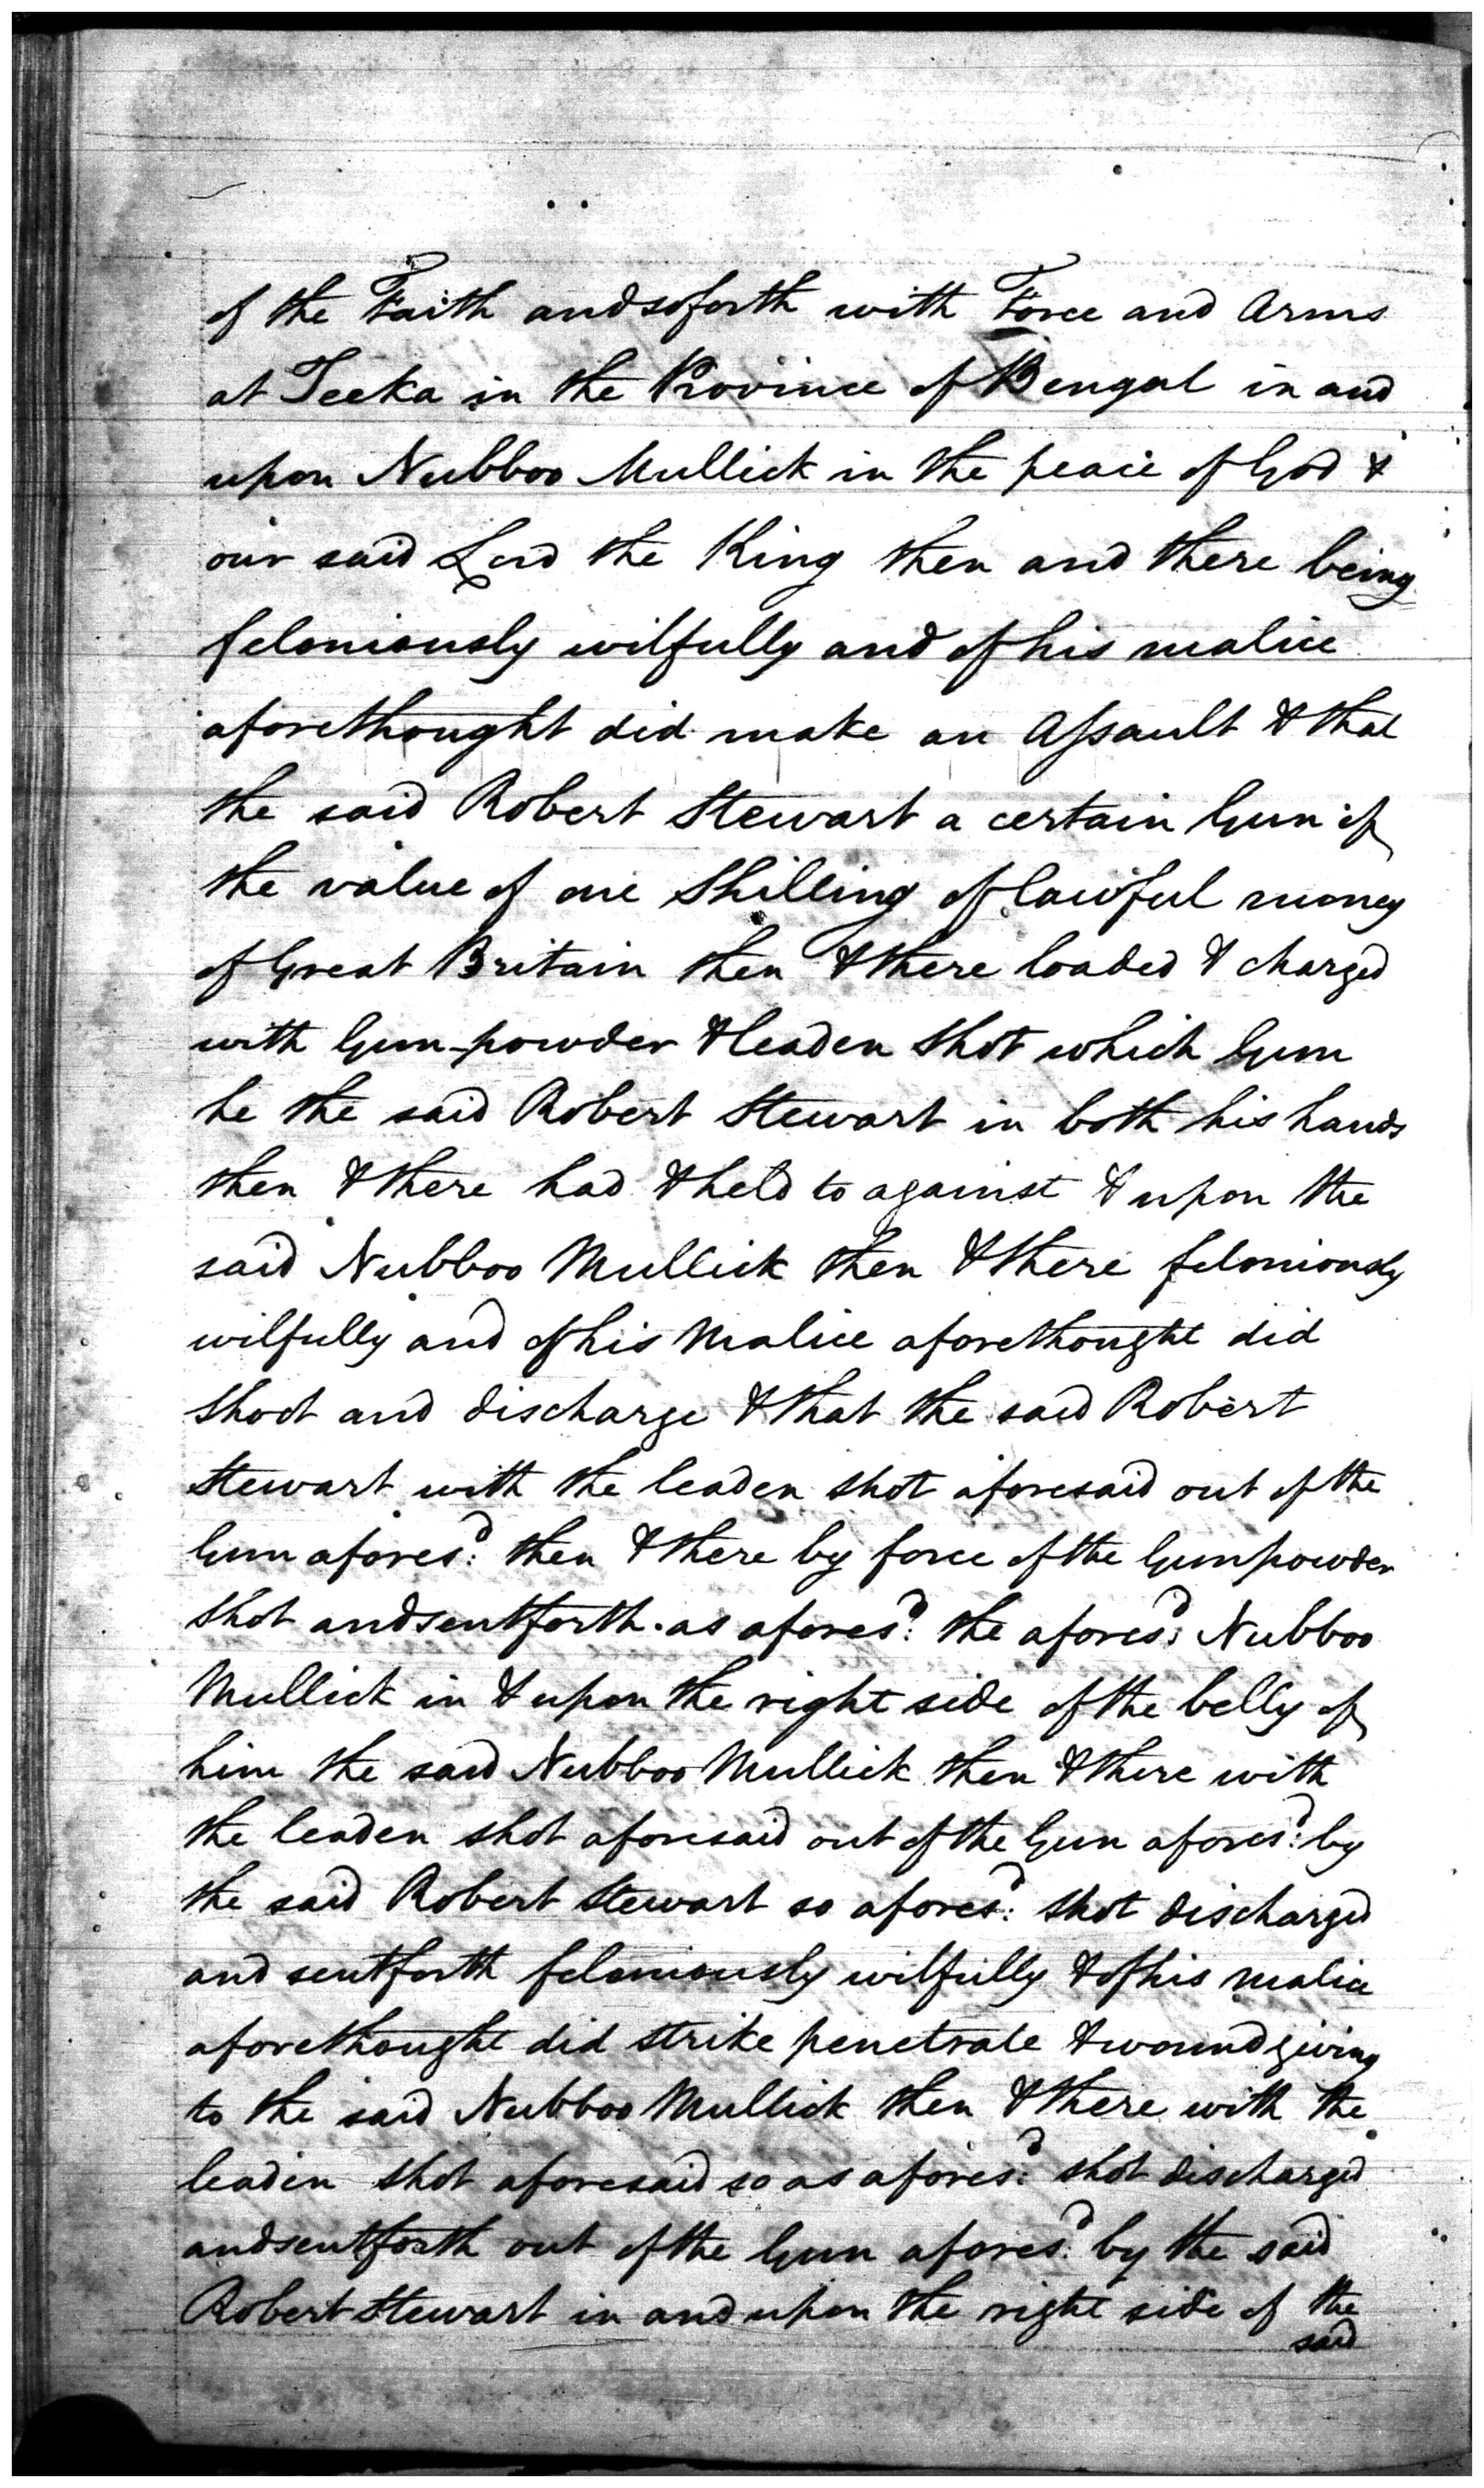 of the Faith and so forth with Force and Arms
at Teeka in the Province of Bengal in and
upon Nubboo Mullick in the peace of God &
our said Lord the King then and there being
feloniously wilfully and of his malice
aforethought did make an Assault & that
the said Robert Stewart a certain Gun of
the value of one Shilling of lawful money
of Great Britain then & there loaded & charged
with Gun-powder & leaden Shot which Gun
he the said Robert Stewart in both his hands
then & there had & held to against & upon the
said Nubboo Mullick then & there feloniously
wilfully and of his Malice aforethought did
shoot and discharge & that the said Robert
Stewart with the leaden shot aforesaid out of the
Gun afores:d then & there by force of the Gunpowder
shot and sent forth as afores:d the afores:d Nubboo
Mullick in & upon the right side of the belly of
him the said Nubboo Mullick then & there with
the leaden shot aforesaid out of the Gun afores:d by
the said Robert Stewart so afores:d shot discharged
and sent forth feloniously wilfully & of his malice
aforethought did strike penetrate & wound giving
to the said Nubboo Mullick then & there with the
leaden shot aforesaid so as afores:d shot discharged
and sent forth out of the Gun afores:d by the said
Robert Stewart in and upon the right side of the
said